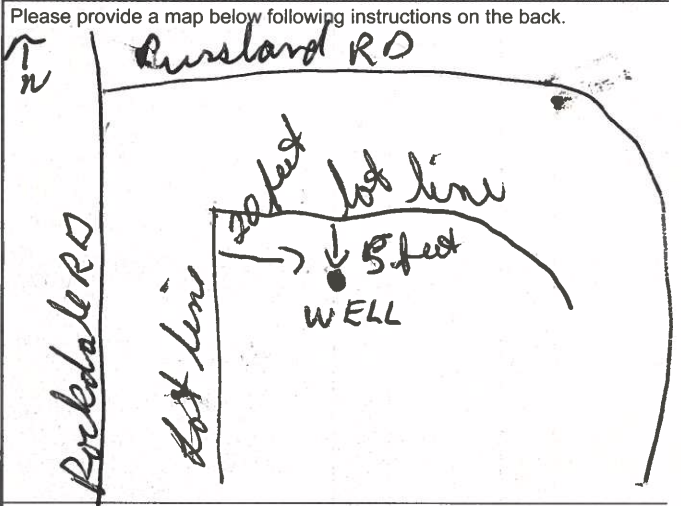 Please provide a map below following instructions on the back.
N
Russland RD
Rockdale RD
20 feet
lot line
5 feet
WELL
Lot line